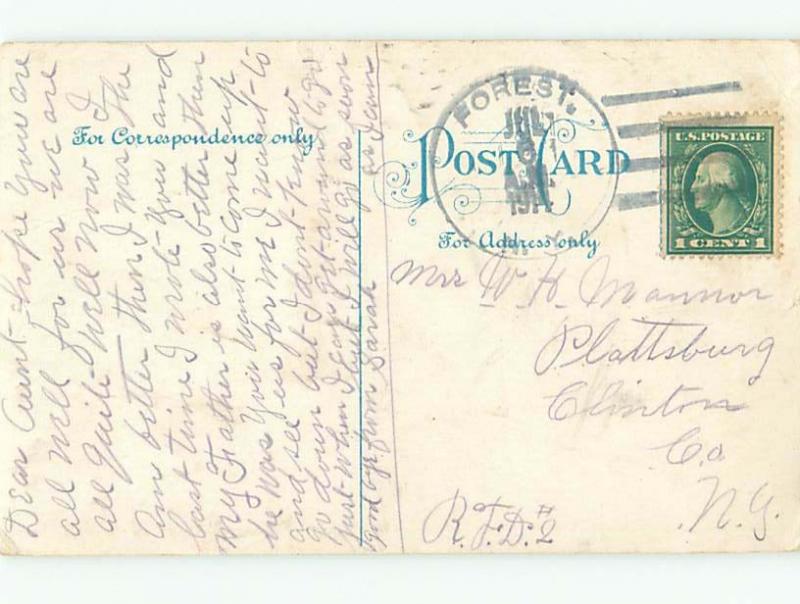 For Correspondence only
Dear Aunt hope you are
all well for us we are
all quite well now I
am better then I was the
last time I wrote you and
my Father is also better then
he was you want to come up
and see us for me I want to
go down but I dont know
just when I can get around to go
but I will go as soon
as I can
good bye from Sarah
POST CARD
For Address only
FOREST,
JUL
1914
N.Y.
U.S. POSTAGE
1 CENT 1
Mrs W H Mannor
Plattsburg
Clinton
Co
N.Y.
R.F.D. # 2